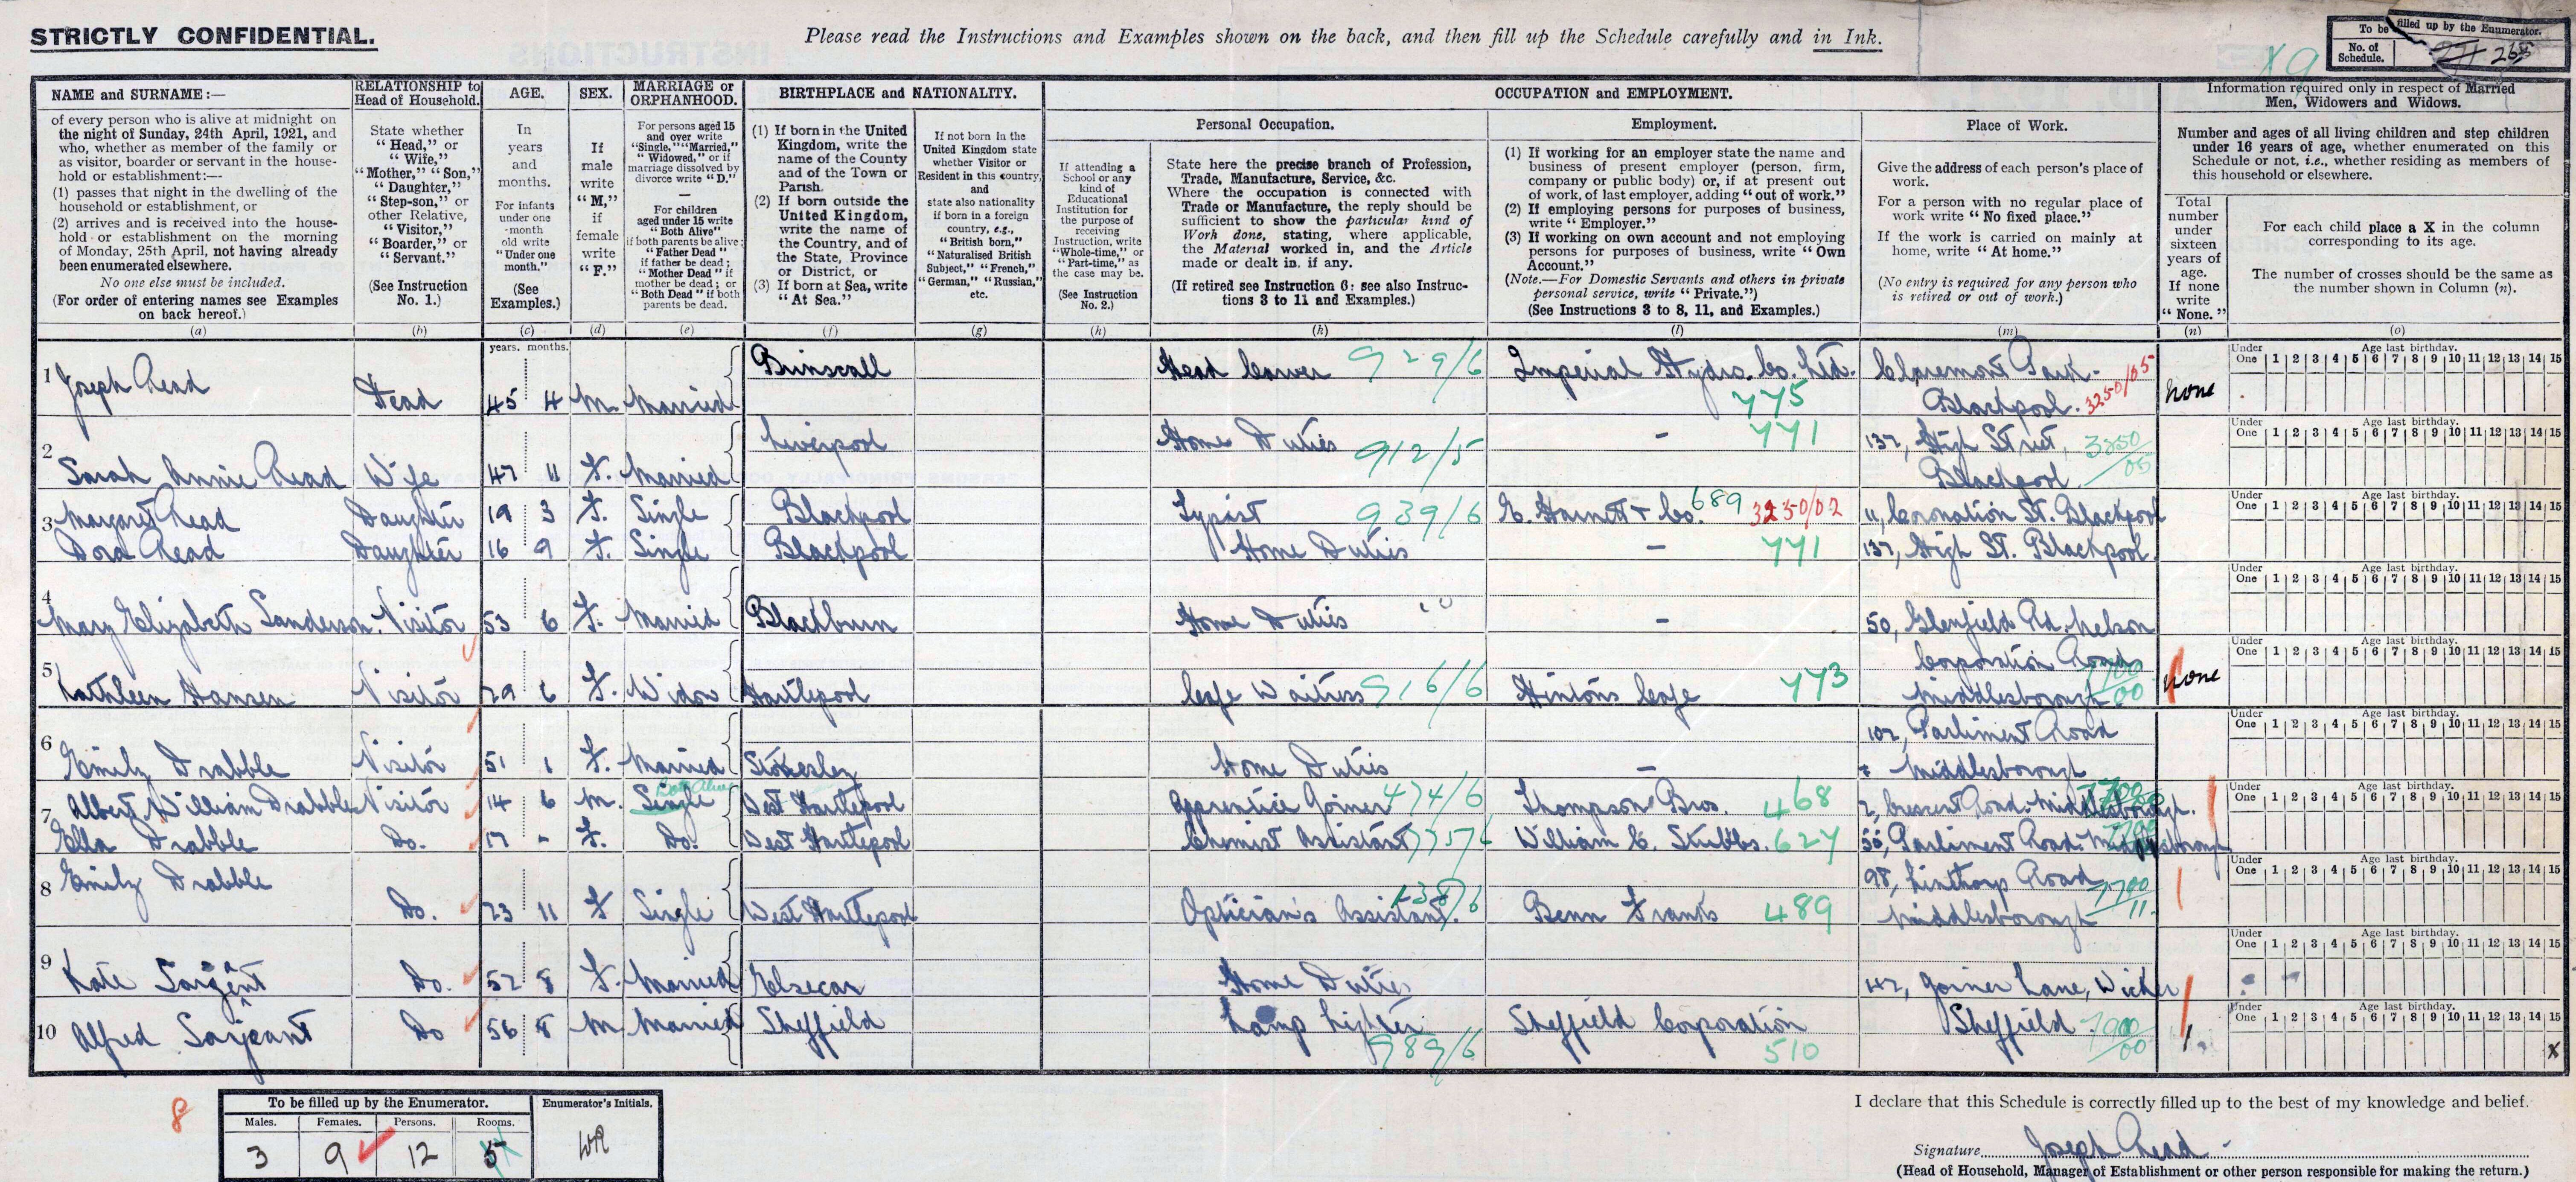 STRICTLY CONFIDENTIAL.
Please read the Instructions and Examples shown on the back, and then fill up the Schedule carefully and in Ink.
To be filled up by the Enumerator.
No. of Schedule. 268
X9
NAME and SURNAME:—
of every person who is alive at midnight on
the night of Sunday, 24th April, 1921, and
who, whether as member of the family or
as visitor, boarder or servant in the house-
hold or establishment:—
(1) passes that night in the dwelling of the
household or establishment, or
(2) arrives and is received into the house-
hold or establishment on the morning
of Monday, 25th April, not having already
been enumerated elsewhere.
No one else must be included.
(For order of entering names see Examples
on back hereof.)
(a)
RELATIONSHIP to
Head of Household.
State whether
"Head," or
"Wife,"
"Mother," "Son,"
"Daughter,"
"Step-son," or
other Relative,
"Visitor,"
"Boarder," or
"Servant."
(See Instruction
No. 1.)
(b)
AGE.
In
years
and
months.
For infants
under one
month
old write
"Under one
month."
(See
Examples.)
(c)
SEX.
If
male
write
"M,"
if
female
write
"F."
(d)
MARRIAGE or
ORPHANHOOD.
For persons aged 15
and over write
"Single," "Married,"
"Widowed," or if
marriage dissolved by
divorce write "D."
—
For children
aged under 15 write
"Both Alive"
if both parents be alive;
"Father Dead"
if father be dead;
"Mother Dead" if
mother be dead; or
"Both Dead" if both
parents be dead.
(e)
BIRTHPLACE and NATIONALITY.
(1) If born in the United
Kingdom, write the
name of the County
and of the Town or
Parish.
(2) If born outside the
United Kingdom,
write the name of
the Country, and of
the State, Province
or District, or
(3) If born at Sea, write
"At Sea."
(f)
If not born in the
United Kingdom state
whether Visitor or
Resident in this country,
and
state also nationality
if born in a foreign
country, e.g.,
"British born,"
"Naturalised British
Subject," "French,"
"German," "Russian,"
etc.
(g)
OCCUPATION and EMPLOYMENT.
Personal Occupation.
If attending a
School or any
kind of
Educational
Institution for
the purpose of
receiving
Instruction, write
"Whole-time," or
"Part-time," as
the case may be.
(See Instruction
No. 2.)
(h)
State here the precise branch of Profession,
Trade, Manufacture, Service, &c.
Where the occupation is connected with
Trade or Manufacture, the reply should be
sufficient to show the particular kind of
Work done, stating, where applicable,
the Material worked in, and the Article
made or dealt in, if any.
(If retired see Instruction 6: see also Instruc-
tions 3 to 11 and Examples.)
(k)
Employment.
(1) If working for an employer state the name and
business of present employer (person, firm,
company or public body) or, if at present out
of work, of last employer, adding "out of work."
(2) If employing persons for purposes of business,
write "Employer."
(3) If working on own account and not employing
persons for purposes of business, write "Own
Account."
(Note.—For Domestic Servants and others in private
personal service, write "Private.")
(See Instructions 3 to 8, 11, and Examples.)
(l)
Place of Work.
Give the address of each person's place of
work.
For a person with no regular place of
work write "No fixed place."
If the work is carried on mainly at
home, write "At home."
(No entry is required for any person who
is retired or out of work.)
(m)
Information required only in respect of Married
Men, Widowers and Widows.
Number and ages of all living children and step children
under 16 years of age, whether enumerated on this
Schedule or not, i.e., whether residing as members of
this household or elsewhere.
Total
number
under
sixteen
years of
age.
If none
write
"None."
(n)
For each child place a X in the column
corresponding to its age.
The number of crosses should be the same as
the number shown in Column (n).
(o)
years. months.
Under One Age last birthday. 1 2 3 4 5 6 7 8 9 10 11 12 13 14 15
1 Joseph Read Head 45 4 M. Married Brinscall Head 929/6 Imperial Hydro. Co. Ltd. 775 Claremont Park. Blackpool. 3250/05 None
2 Sarah Annie Read Wife 47 11 F. Married Liverpool Home Duties 912/5 – 771 137, High Street, Blackpool. 3250/05
3 Margaret Read Daughter 19 3 F. Single Blackpool Typist 939/6 689 3250/02 11, Coronation St. Blackpool
Dora Read Daughter 16 9 F. Single Blackpool Home Duties – 771 137, High St. Blackpool.
4 Mary Elizabeth Sanderson. Visitor 53 6 F. Married Blackburn Home Duties – 50, Glenfield Rd. Nelson
5 Kathleen Hansen Visitor 29 6 F. Widow Hartlepool Cafe Waitress 916/6 Hintons Cafe 773 Corporation Road Middlesborough None
6 Emily Drabble Visitor 51 1 F. Married Stokesley Home Duties – 102, Parliment Road Middlesborough
7 Albert William Drabble Visitor 14 6 M. Single Both Alive West Hartlepool Apprentice Joiner 474/6 Thompson Bros. 468 2, Crescent Road. Middlesborough.
Ella Drabble Do. 17 - F. Do. West Hartlepool Chemist Assistant 775/6 William C. Stubbs. 627 Parliment Road. Middlesborough
8 Emily Drabble Do. 23 11 F Single West Hartlepool Optician's Assistant. Benn Franks 489 98, Linthorp Road Middlesborough 7700/11
9 Kate Sargent Do. 52 8 F. Married Elsecar Home Duties 142, Joiner Lane, Wicker
10 Alfred Sarjeant Do 56 8 M Married Sheffield Lamp Lighter 989/6 Sheffield Corporation 510 Sheffield 1. X
8
To be filled up by the Enumerator.
Males. Females. Persons. Rooms.
3 9 12 5
Enumerator's Initials.
WR
I declare that this Schedule is correctly filled up to the best of my knowledge and belief.
Signature Joseph Read
(Head of Household, Manager of Establishment or other person responsible for making the return.)